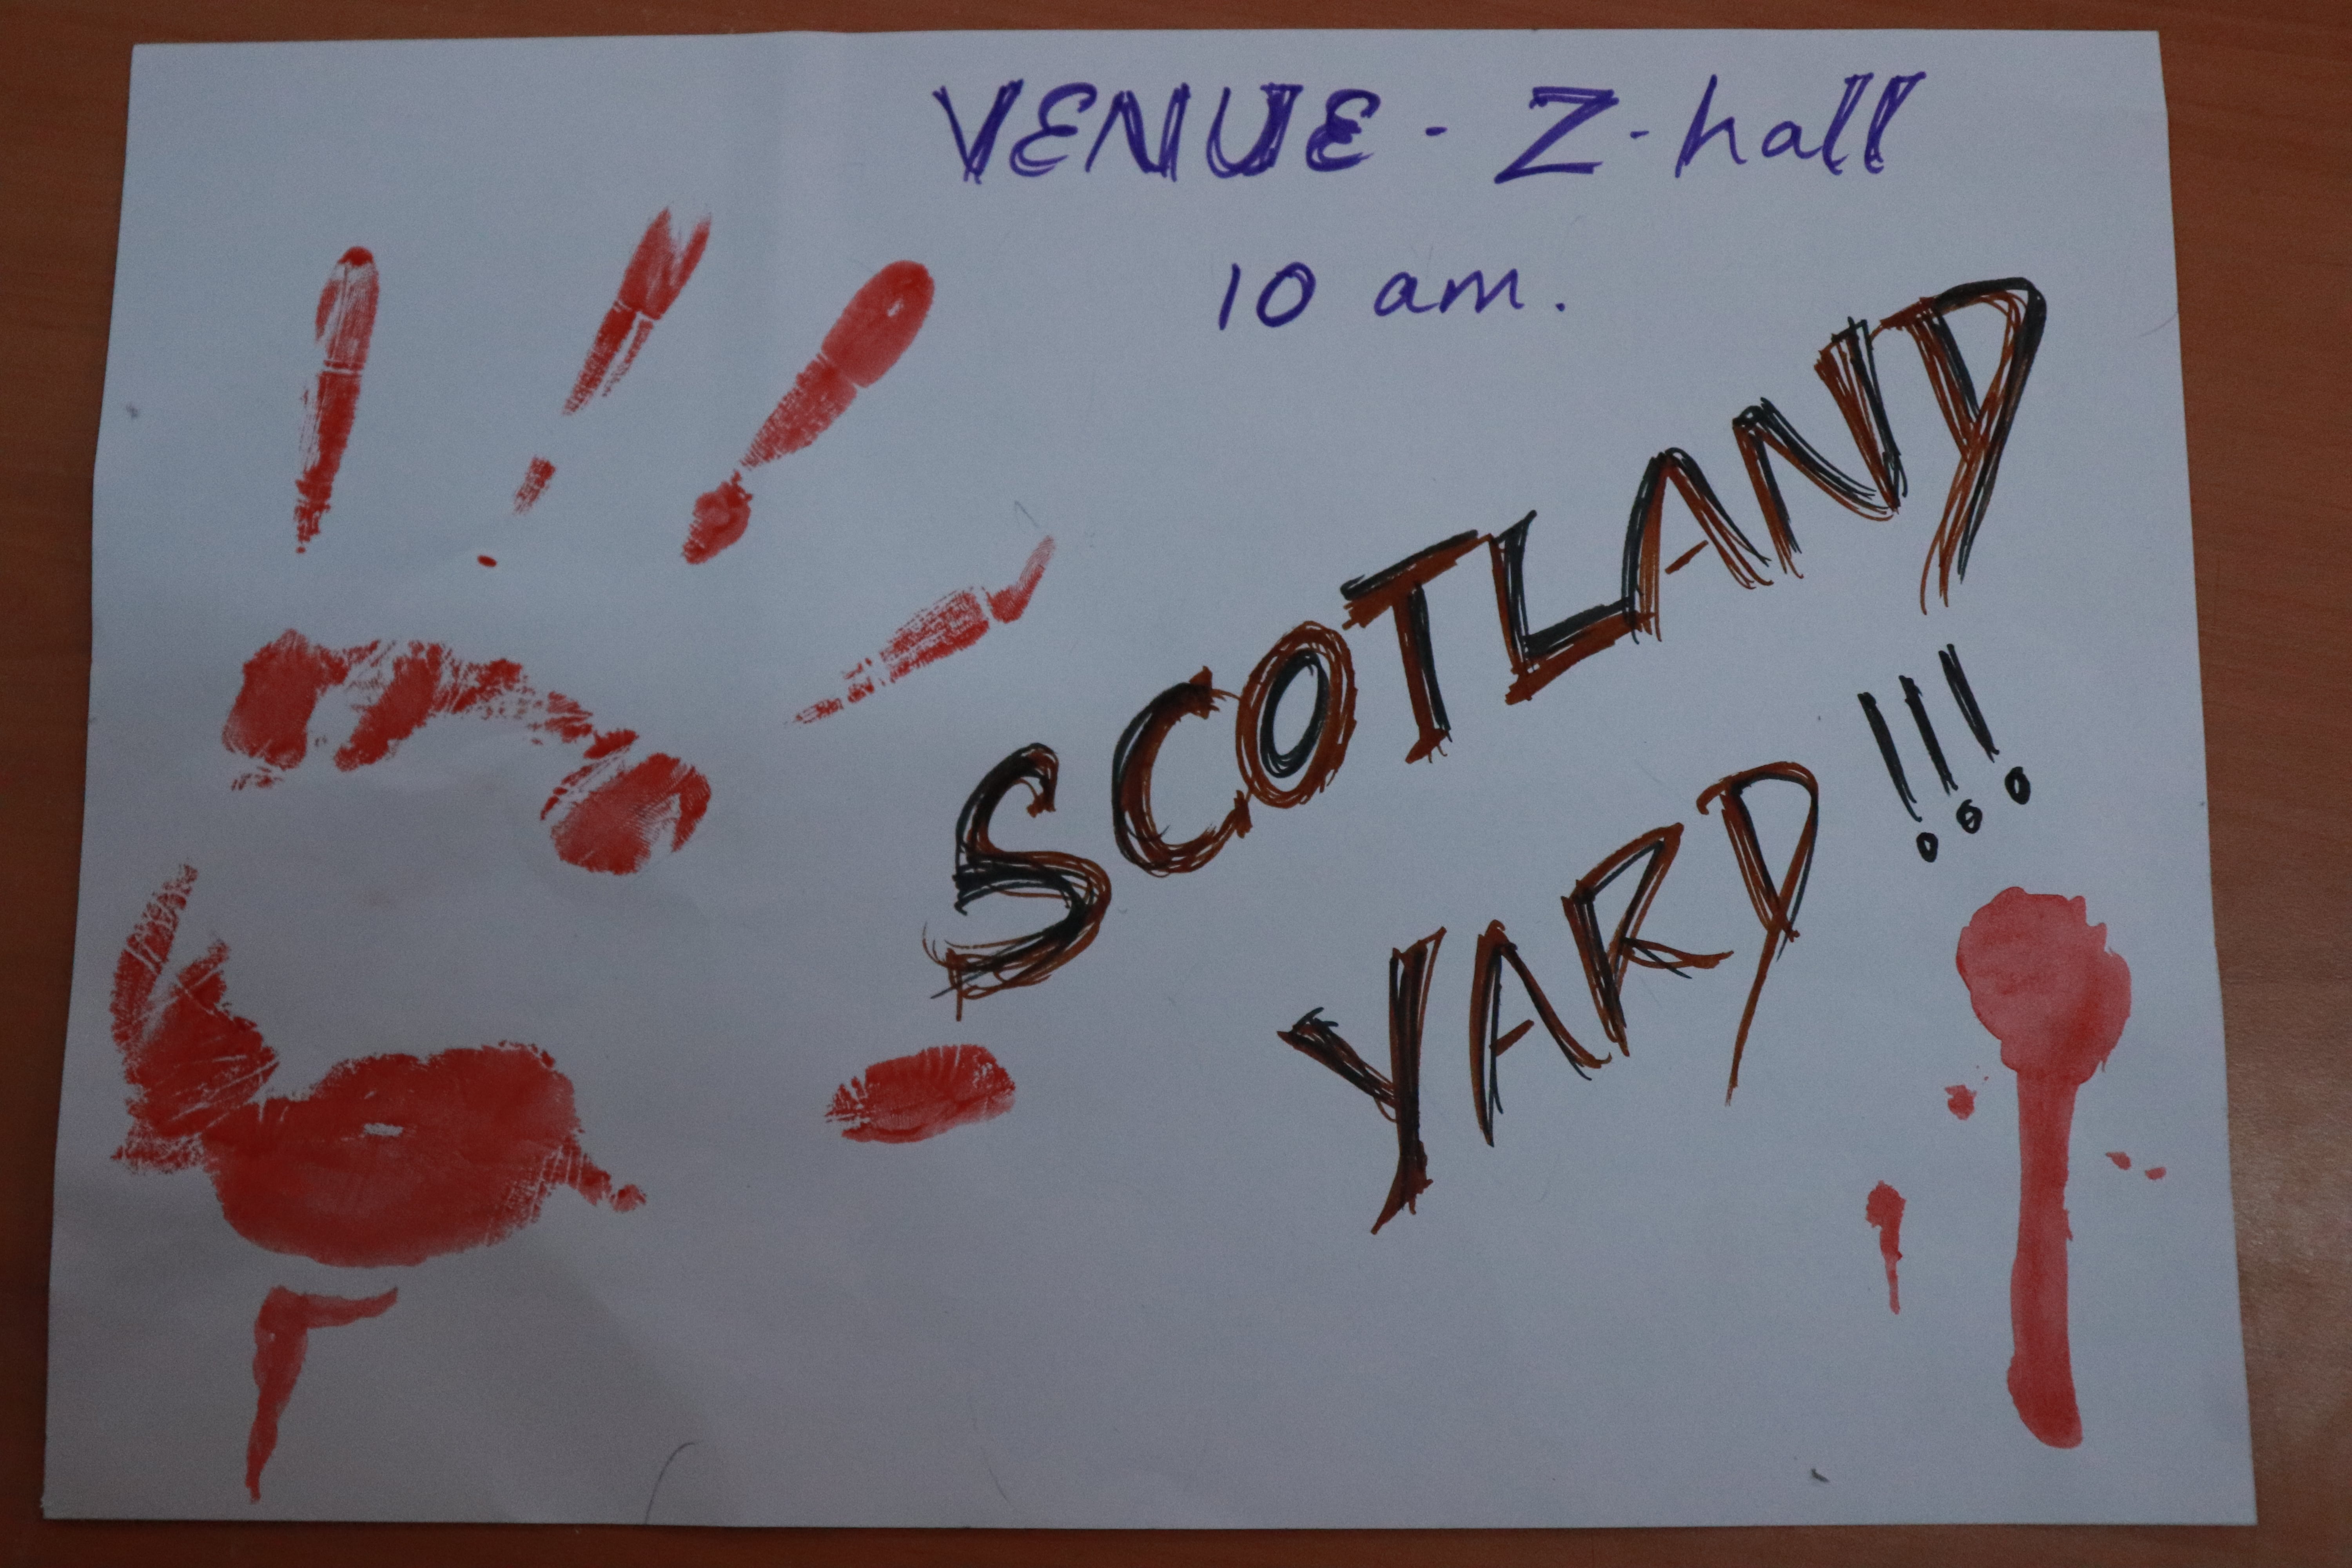 VENUE - Z-hall
10 am.
SCOTLAND
YARD !!!